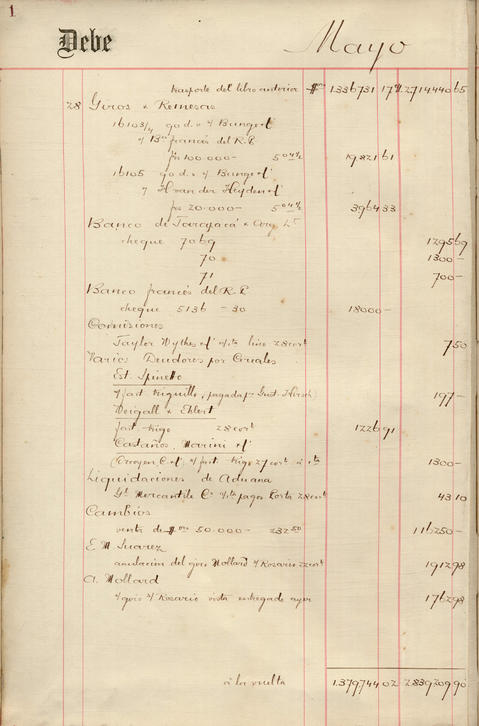 1
Debe Mayo
trasporte del libro anterior $ 1.336731 17 2714440 65
28 Giros & Remesas
16103/4 90 d. v. s/ Bunge
s/ Bco francés del R.P.
frs 100.000 — 50 4 1/2 19821 61
16105 90 d. v. s/ Bunge
H van der Heyden
frs 20.000 — 50 4 1/2 3964 33
Banco de Tarapacá & Arg. Lt
cheque 7069 1295 69
70 1300 —
71 700 —
Banco francés del R.P.
cheque 5136 — 30 18000 —
Comisiones
Tayler Wythes 28 cort 7 50
Varios Deudores por Cereales
Est. Spinetto
s/ fact. triguillo, pagada p. Gust. Hirsch) 197 —
Weigall & Ehlert
fact. trigo 28 cort 1226 91
Castaños, Marini
s/ fact. trigo 27 cort 1300 —
Liquidaciones de Aduana
Gl Mercantile Co pagos 28 cort 43 10
Cambios
venta de $ oro 50.000 — 232 50 116250 —
E. M. Suarez
anulacion del giro Mollard s/ Rosario 22 cort 1912 98
A. Mollard
s/ giro s/ Rosario vista entregado ayer 1762 98
á la vuelta 1.379744 02 2.839209 90